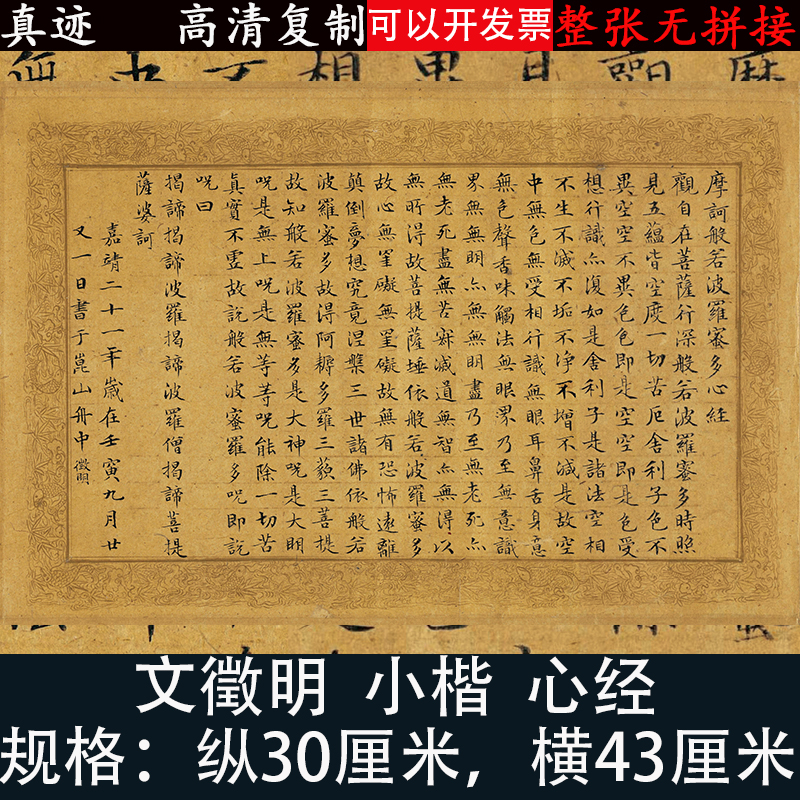 真迹 高清复制 可以开发票 整张无拼接
摩訶般若波羅蜜多心經
觀自在菩薩行深般若波羅蜜多時照
見五蘊皆空度一切苦厄舍利子色不
異空空不異色色即是空空即是色受
想行識亦復如是舍利子是諸法空相
不生不滅不垢不淨不增不減是故空
中無色無受相行識無眼耳鼻舌身意
無色聲香味觸法無眼界乃至無意識
界無無明亦無無明盡乃至無老死亦
無老死盡無苦寂滅道無智亦無得以
無所得故菩提薩埵依般若波羅蜜多
故心無罣礙無罣礙故無有恐怖遠離
顛倒夢想究竟涅槃三世諸佛依般若
波羅蜜多故得阿耨多羅三藐三菩提
故知般若波羅蜜多是大神呪是大明
呪是無上呪是無等等呪能除一切苦
真實不虛故說般若波蜜羅多呪即說
呪曰
揭諦揭諦波羅揭諦波羅僧揭諦菩提
薩婆訶
嘉靖二十一年歲在壬寅九月廿
又一日書于崑山舟中 徵明
文徵明 小楷 心经
规格：纵30厘米，横43厘米